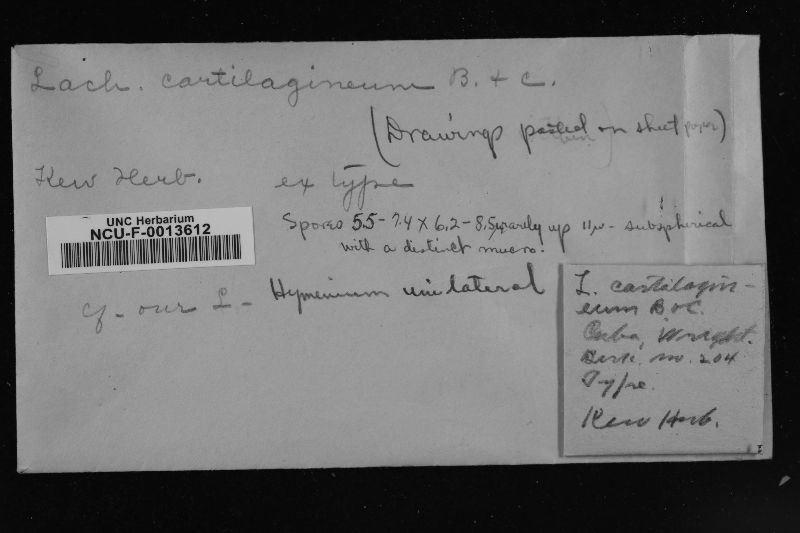 Lach. cartilagineum B. + C.
(Drawings pasted on sheet paper)
Kew Herb. ex type
UNC Herbarium
NCU-F-0013612
Spores 5.5 - 7.4 x 6.2 - 8.5µ, rarely up 11µ - subspherical
with a distinct mucro.
cf. our L - Hymenium unilateral
L. cartilagin-
eum B & C.
Cuba, Wright.
no. 204
Type.
Kew Herb.